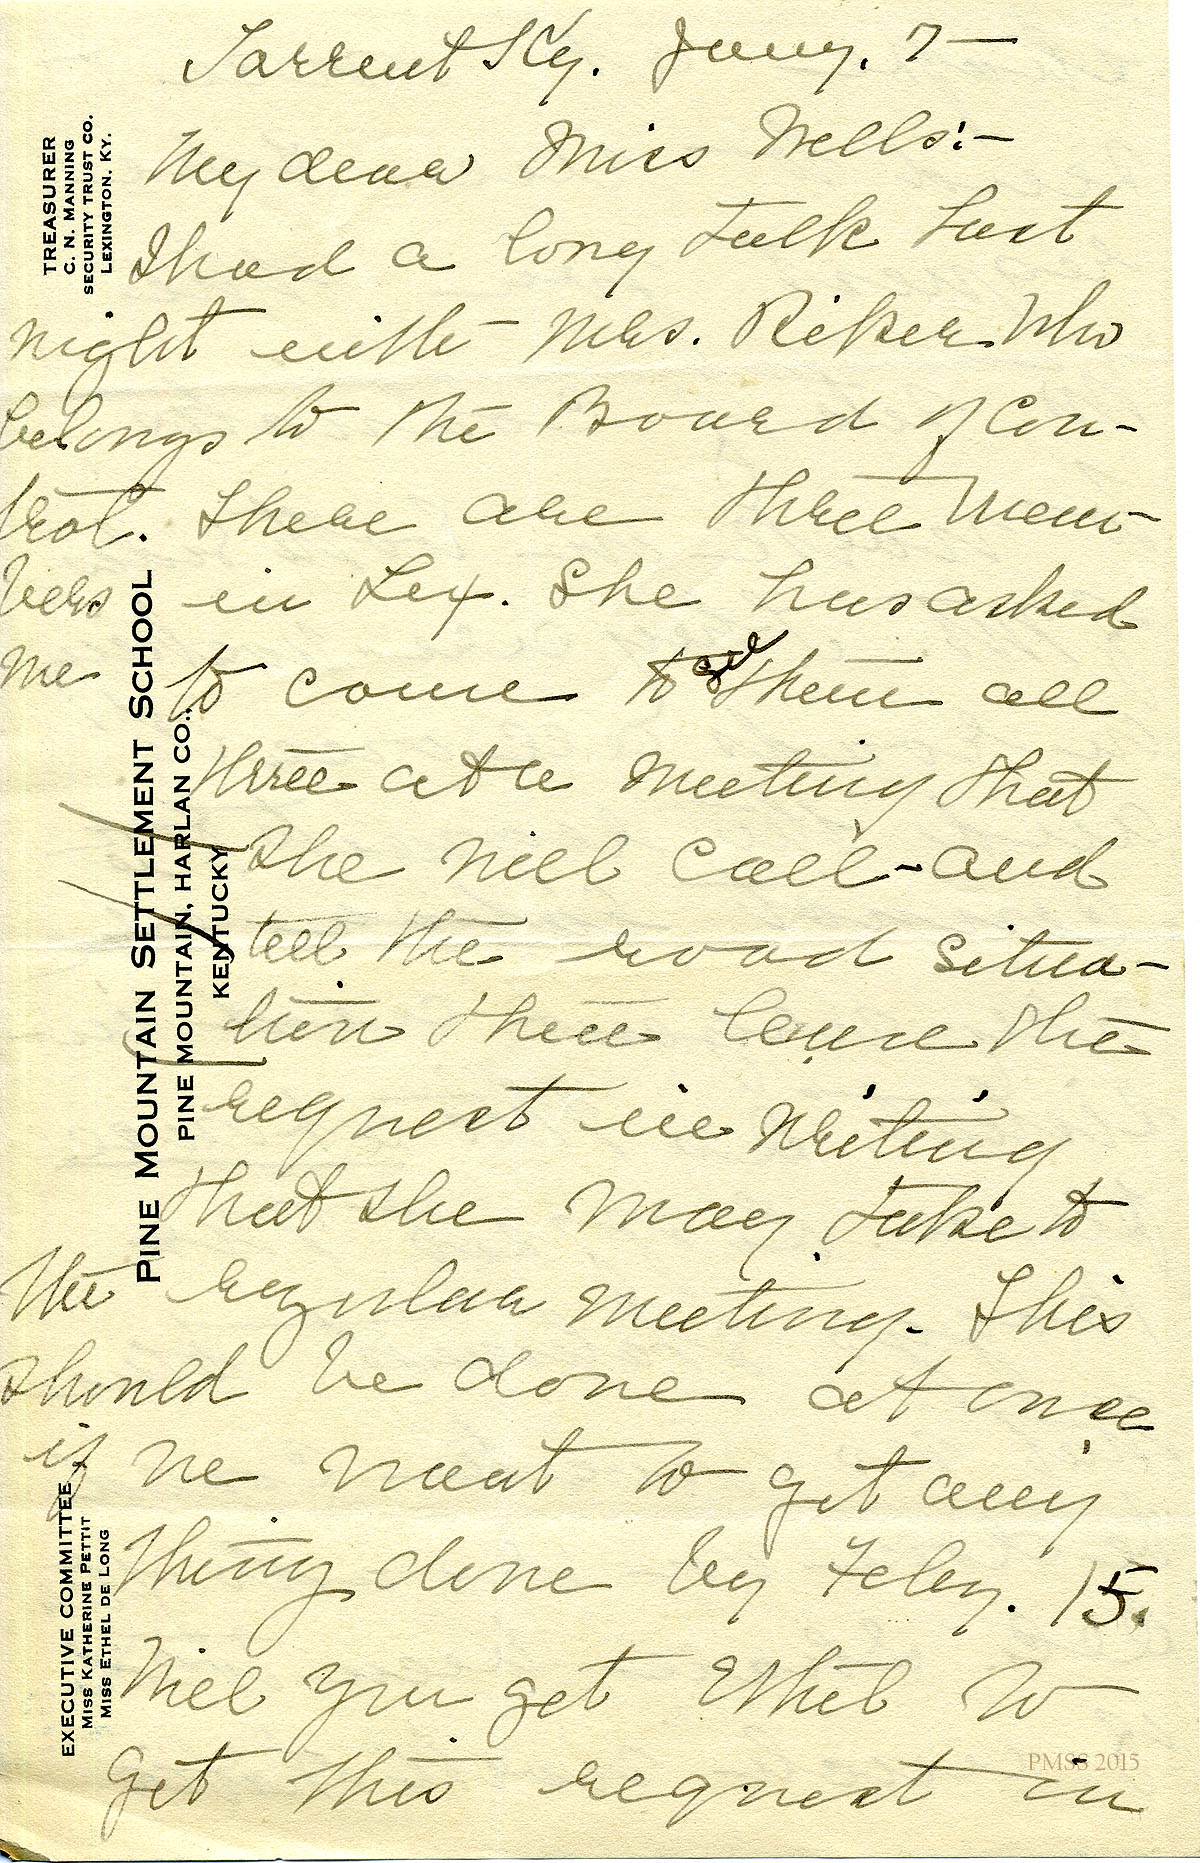 Torrent Ky. Jany. 7—
My dear Miss Wells:—
I had a long talk last
night with Mrs. Riker who
belongs to the Board of Con-
trol. There are three mem-
bers in Lex. She has asked
me to come to see them all
three at a meeting that
she will call - and
tell the road situa-
tion then leave the
request in writing
that she may take to
the regular meeting. This
should be done at once
if we want to get any
thing done by Feby. 15.
Will you get Ethel to
get this request in
TREASURER
C. N. MANNING
SECURITY TRUST CO.
LEXINGTON, KY.
PINE MOUNTAIN SETTLEMENT SCHOOL
PINE MOUNTAIN, HARLAN CO.,
KENTUCKY
EXECUTIVE COMMITTEE
MISS KATHERINE PETTIT
MISS ETHEL DE LONG
PMSS 2015